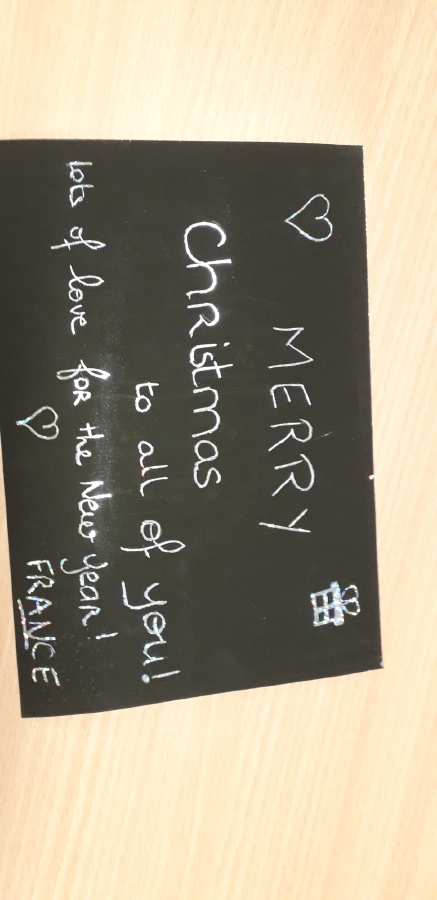 MERRY
Christmas
to all of you!
lots of love for the New year!
FRANCE